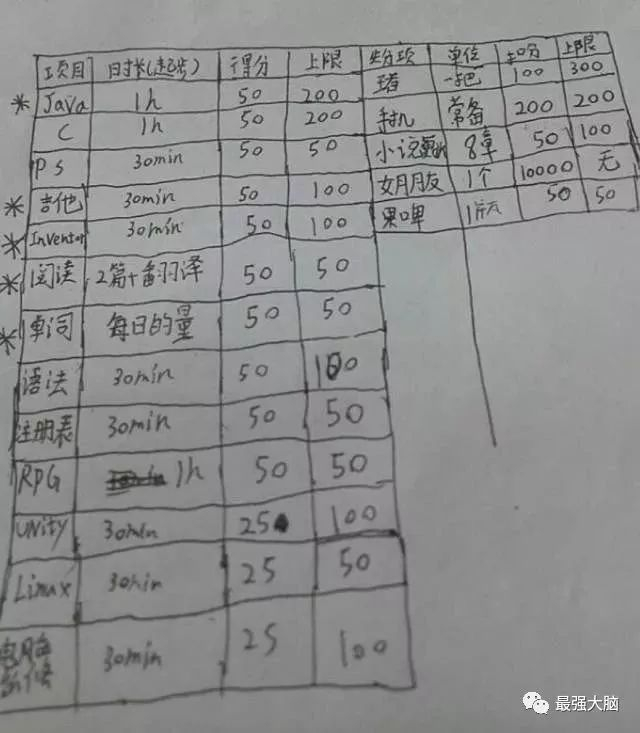 项目 时长(起步) 得分 上限 失分项 单位 扣分 上限
* Java 1h 50 200 一把 100 300
C 1h 50 200 手机 常备 200 200
Ps 30min 50 50 小说 8章 50 100
* 吉他 30min 50 100 女朋友 1个 10000 无
* Inventor 30min 50 100 果啤 50 50
* 阅读 2篇+翻译 50 50
* 单词 每日的量 50 50
语法 30min 50 100
注册表 30min 50 50
RPG 1h 50 50
unity 30min 25 100
Linux 30min 25 50
电脑 30min 25 100
最强大脑